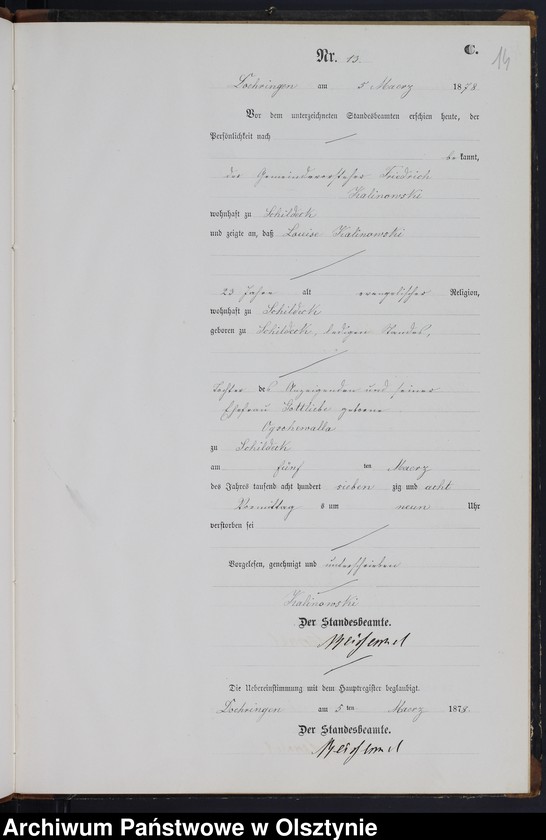 C.
14
Nr. 13.
Loehringen am 5 Maerz 1878
Vor dem unterzeichneten Standesbeamten erschien heute, der
Persönlichkeit nach
bekannt,
der Gemeindevorsteher Friedrich
Kalinowski
wohnhaft zu Schildeck
und zeigte an, daß Louise Kalinowski
23 Jahre alt evangelischer Religion,
wohnhaft zu Schildeck
geboren zu Schildeck, ledigen Standes,
Tochter des Anzeigenden und seiner
Ehefrau Gottliebe geborne
zu Schildeck
am fünf ten Maerz
des Jahres tausend acht hundert sieben zig und acht
Vormittag s um neun Uhr
verstorben sei
Vorgelesen, genehmigt und unterschrieben
Kalinowski
Der Standesbeamte.
Die Uebereinstimmung mit dem Hauptregister beglaubigt.
Loehringen am 5 ten Maerz 1878.
Der Standesbeamte.
Archiwum Państwowe w Olsztynie